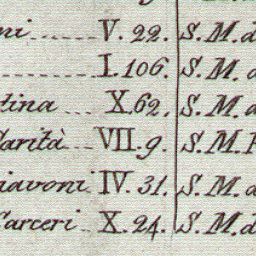 ni ...... V. 22. S. M. d
...... I. 106. S. M. d
tina ..... X. 62. S. M. d
Carità ... VII. 9. S. M. P
iavoni .. IV. 31. S. M. d
Carceri .. X. 24. S. M. d